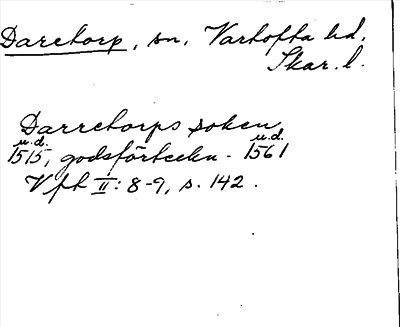 Daretorp, sn, Vartofta hd.
Skar. l.
Darretorps soken
u.d. u.d.
1515, godsförteckn. - 1561
Vft II: 8-9, s. 142.